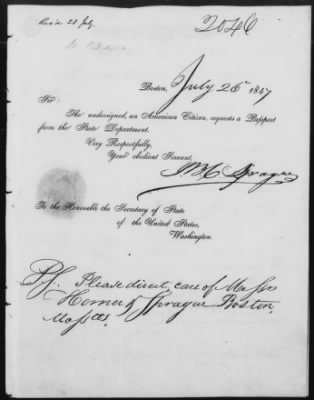 Rec'd 28 July.
2046
Boston, July 26 1847
Sir:
The undersigned, an American Citizen, requests a Passport
from the State Department.
Very Respectfully,
Your obedient Servant,
Sprague
To the Honorable the Secretary of State
of the United States,
Washington.
P.S. Please direct, care of Messrs
Horner & Sprague Boston,
Massts.